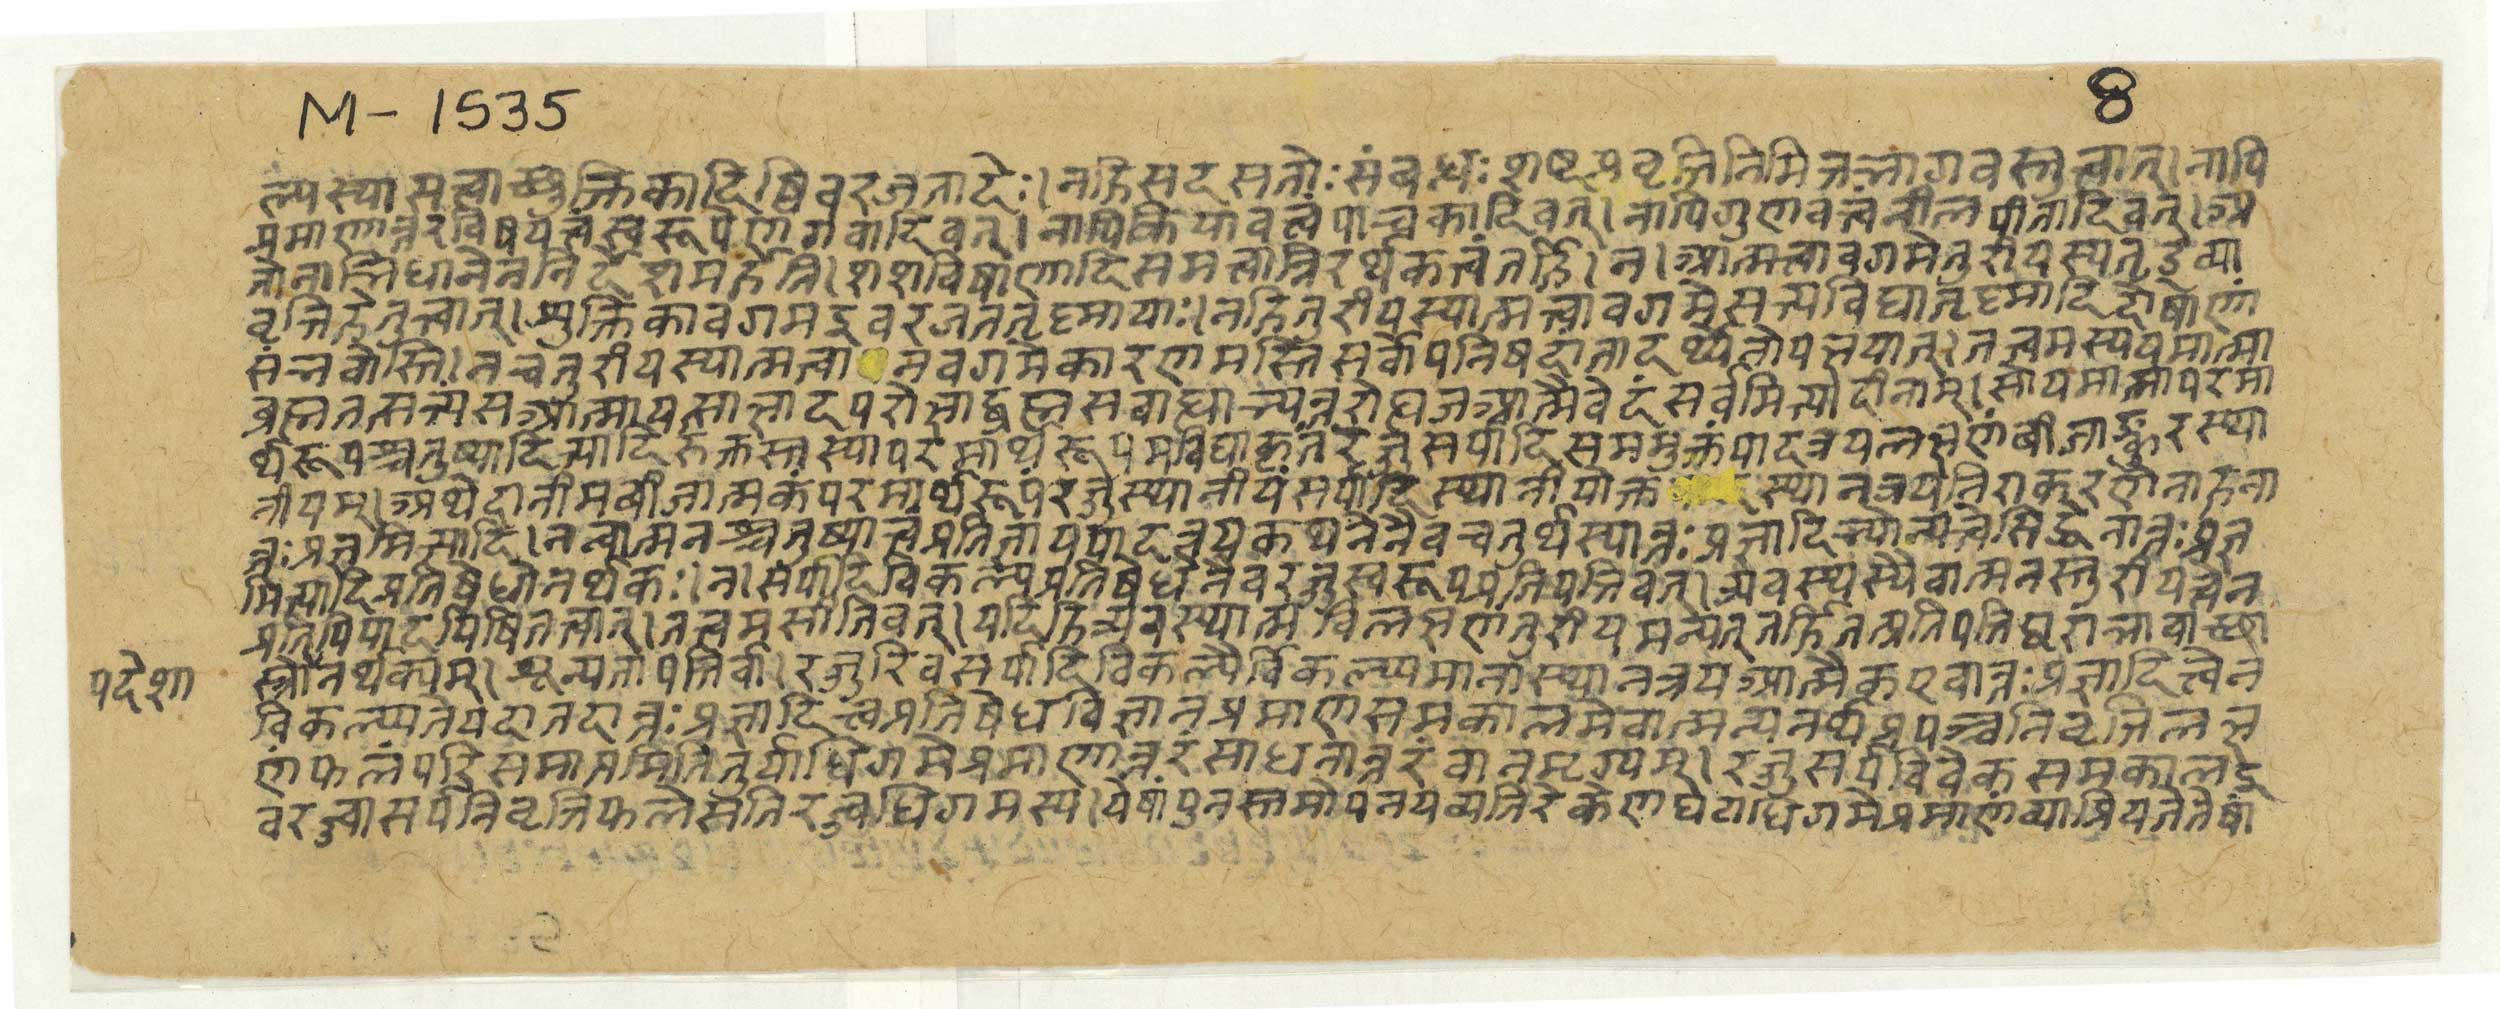 M- 1535
8
ल्पस्या सत्त्वाच्छुक्तिकादिष्विवरजतादेः। नहिसदसतोः संबन्धः शब्दप्रवृत्तिनिमित्तभागवस्तुत्वात्। नापि
प्रमाणान्तरविषयत्वंस्वरूपेणगवादिवत्। नापिक्रियावत्वंपाचकादिवत्। नापिगुणवत्त्वंनीलपीतादिवत्। अ
तोनाभिधानेननिर्देशमर्हति। शशविषाणादिसमत्वान्निरर्थकत्वंतर्हि। न। आत्मत्वावगमेतुरीयस्यतृड्व्या
वृत्तिहेतुत्वात्। शुक्तिकावगमइवरजततृष्णायाः। नहितुरीयस्यात्मत्वावगमेसत्यविद्यातृष्णादिदोषाणां
संभवोस्ति। नचतुरीयस्यात्मत्वा नवगमेकारणमस्तिसर्वोपनिषदांतादर्थ्येनोपक्षयात्। तत्त्वमस्ययमात्मा
ब्रह्मतत्सत्यंसआत्मायत्साक्षादपरोक्षाद्ब्रह्मसबाह्याभ्यन्तरोह्यजआत्मैवेदंसर्वमित्यादीनाम्। सोयमात्मापरमा
र्थरूपश्चतुष्पादित्यादिरुक्तस्तस्यापरमार्थरूपमविद्याकृतंरज्जुसर्पादिसममुक्तंपादत्रयलक्षणंबीजाङ्कुरस्था
नीयम्। अथेदानीमबीजात्मकंपरमार्थरूपंरज्जुस्थानीयंसर्पादिस्थानीयोक्त स्थानत्रयनिराकरणेनाहना
न्तःप्रज्ञमित्यादि। नन्वात्मनश्चतुष्पात्त्वंप्रतिज्ञायपादत्रयकथनेनैवचतुर्थस्यान्तःप्रज्ञादिभ्योन्यत्वेसिद्धेनान्तःप्रज्ञ
मित्यादिप्रतिषेधोनर्थकः। न। सर्पादिविकल्पप्रतिषेधेनैवरज्जुस्वरूपप्रतिपत्तिवत्। त्र्यवस्थस्यैवात्मनस्तुरीयत्वेन
प्रतिपिपादयिषितत्वात्। तत्त्वमसीतिवत्। यदिहित्र्यवस्थात्मविलक्षणंतुरीयमन्यत्तर्हितत्प्रतिपत्तिद्वाराभावाच्छा
पदेशा
स्त्रोनर्थक्यम्। शून्यतापत्तिर्वा। रज्जुरिवसर्पादिविकल्पैर्विकल्प्यमानास्थानत्रयआत्मैकएवान्तःप्रज्ञादित्वेन
विकल्प्यतेयदातदान्तःप्रज्ञादित्वप्रतिषेधविज्ञानप्रमाणसमकालमेवात्मन्यनर्थप्रपञ्चनिवृत्तिलक्ष
णंफलंपरिसमाप्तमितितुर्याधिगमेप्रमाणान्तरंसाधनान्तरंवानमृग्यम्। रज्जुसर्पविवेकसमकालइ
वरज्ज्वासर्पनिवृत्तिफलेसतिरज्ज्वधिगमस्य। येषांपुनस्तमोपनयव्यतिरेकेणघटाधिगमेप्रमाणंव्याप्रियतेतेषां